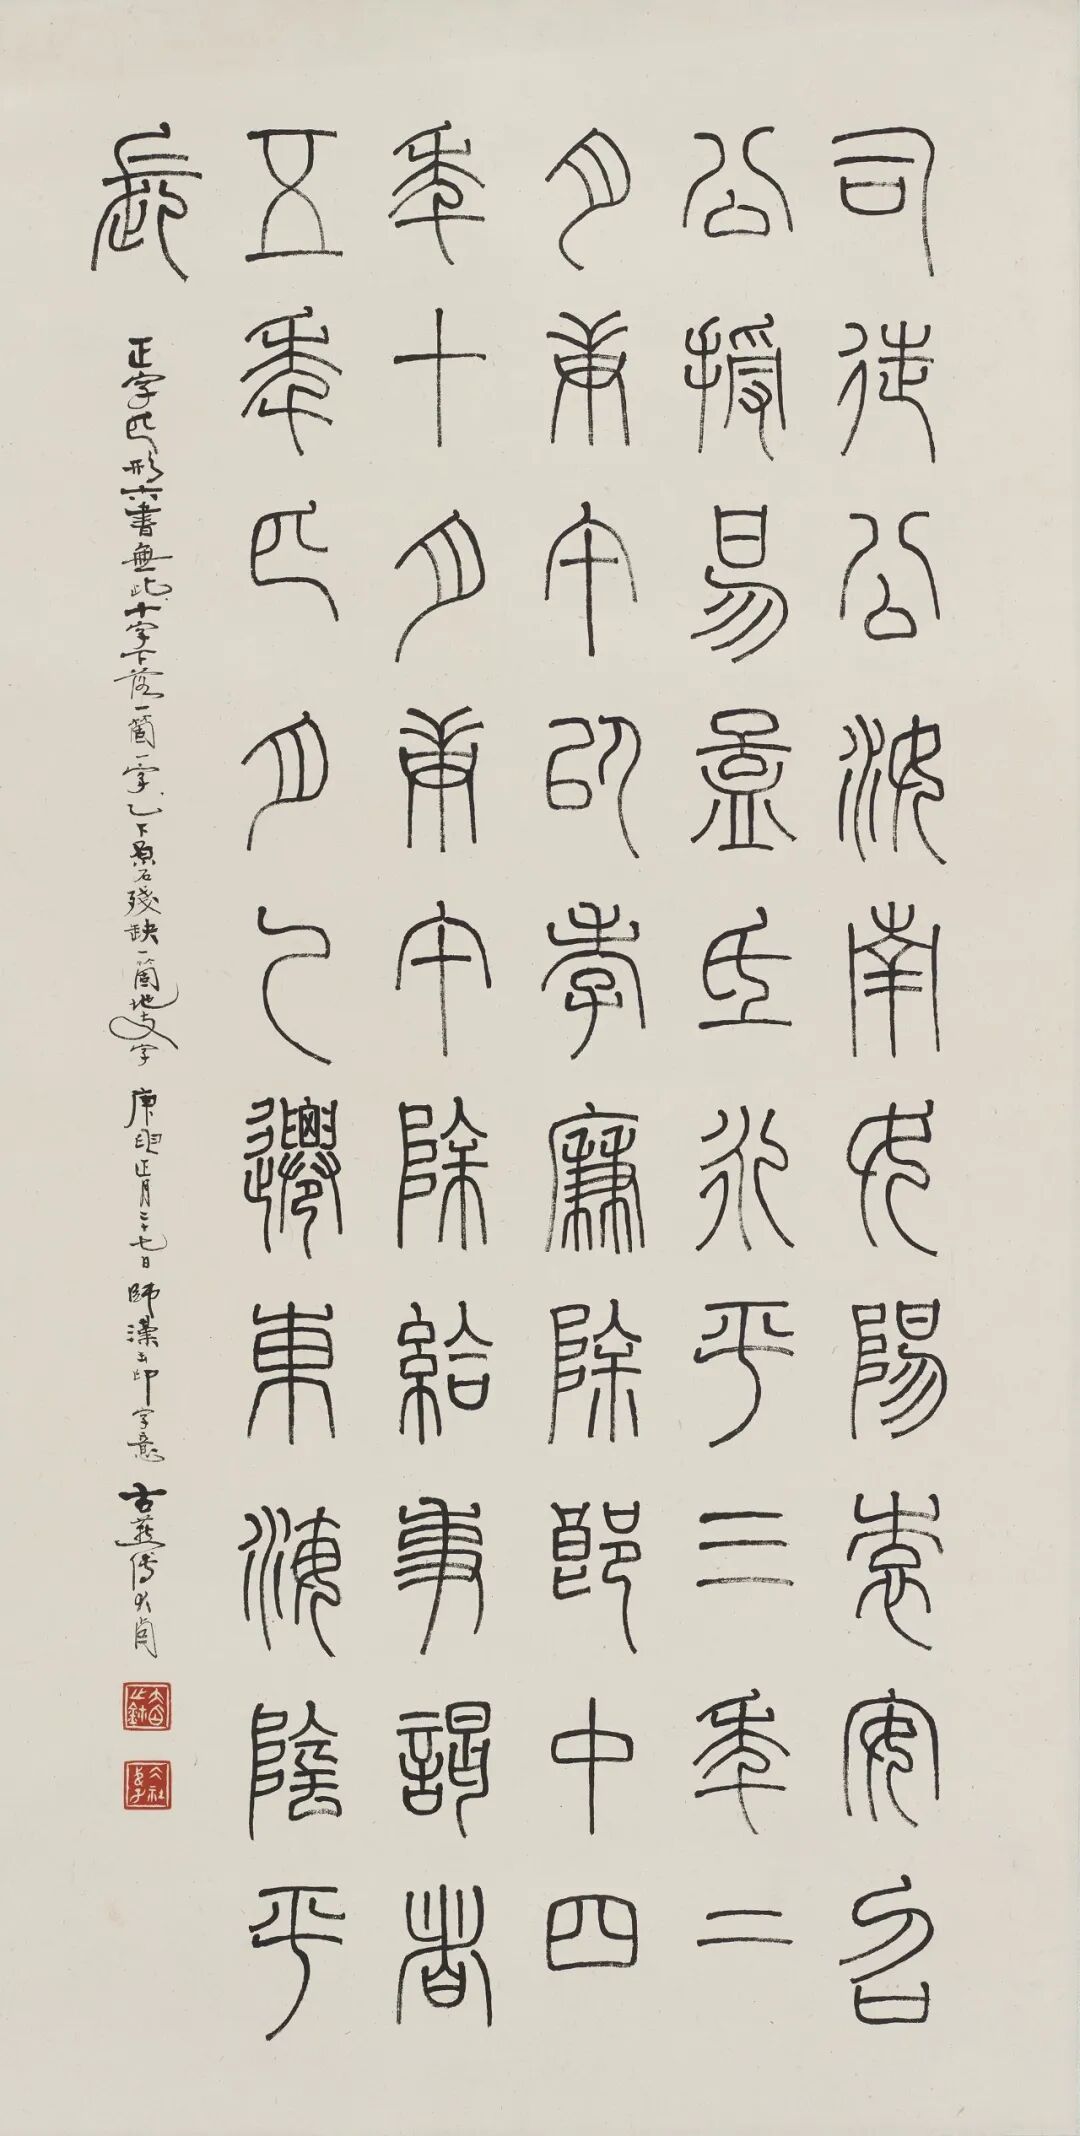 司徒公汝南女陽袁安召
公授易孟氏永平三年二
月庚午以孝廉除郎中四
年十月庚午除給事謁者
五年正月乙遷東海陰平
長
正字匹形六書無此十字下落一箇一字乙下原石殘缺一箇地支字 庚申正月二十七日師漢玉印字意 古燕傅大卣
大卣之鉨